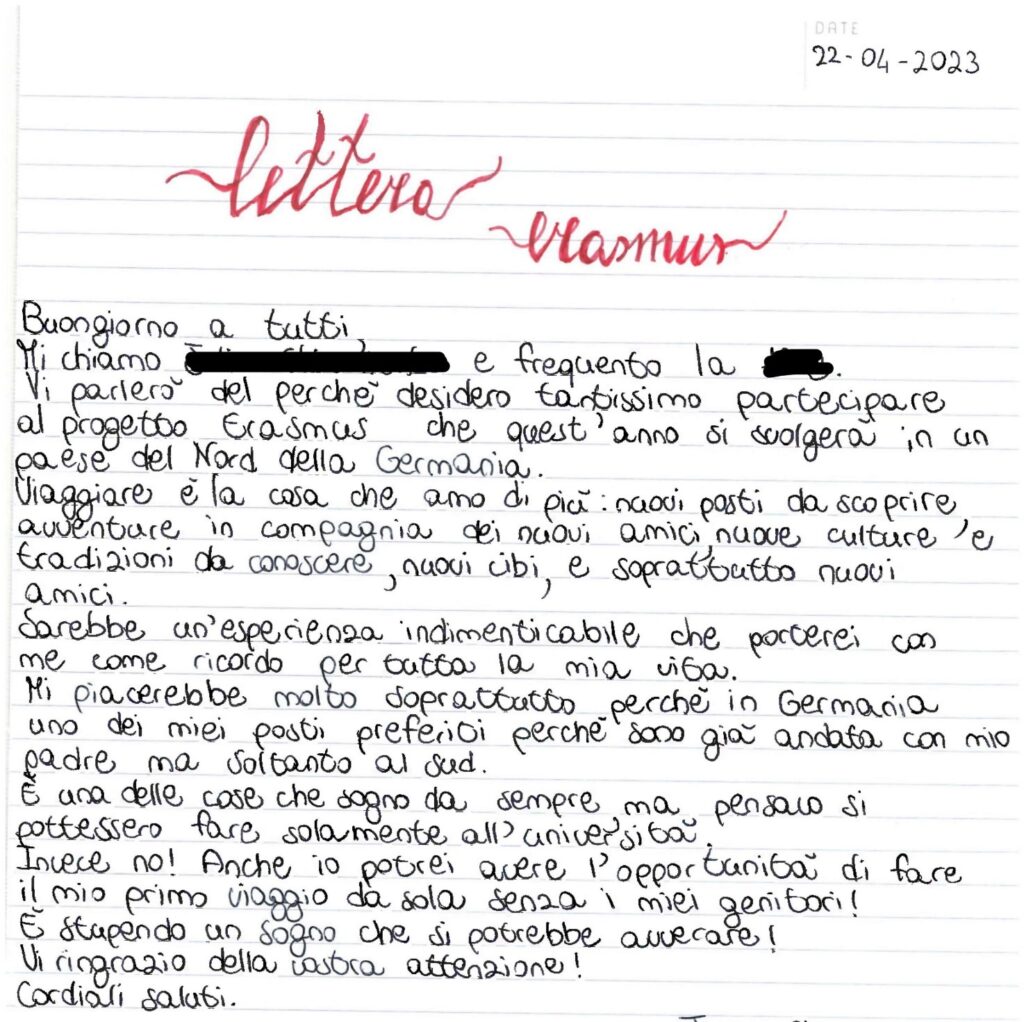 DATE
22-04-2023
lettera
erasmus
Buongiorno a tutti,
Mi chiamo e frequento la .
Vi parlerò del perchè desidero tantissimo partecipare
al progetto Erasmus che quest'anno si svolgerà in un
paese del Nord della Germania.
Viaggiare è la cosa che amo di più: nuovi posti da scoprire,
avventure in compagnia dei nuovi amici, nuove culture e
tradizioni da conoscere, nuovi cibi, e soprattutto nuovi
amici.
Sarebbe un'esperienza indimenticabile che porterei con
me come ricordo per tutta la mia vita.
Mi piacerebbe molto soprattutto perchè in Germania
uno dei miei posti preferiti perchè sono già andata con mio
padre ma soltanto al sud.
È una delle cose che sogno da sempre, ma pensavo si
pottessero fare solamente all'università.
Invece no! Anche io potrei avere l'opportunità di fare
il mio primo viaggio da sola senza i miei genitori!
È stupendo un sogno che si potrebbe avverare!
Vi ringrazio della vostra attenzione!
Cordiali saluti.